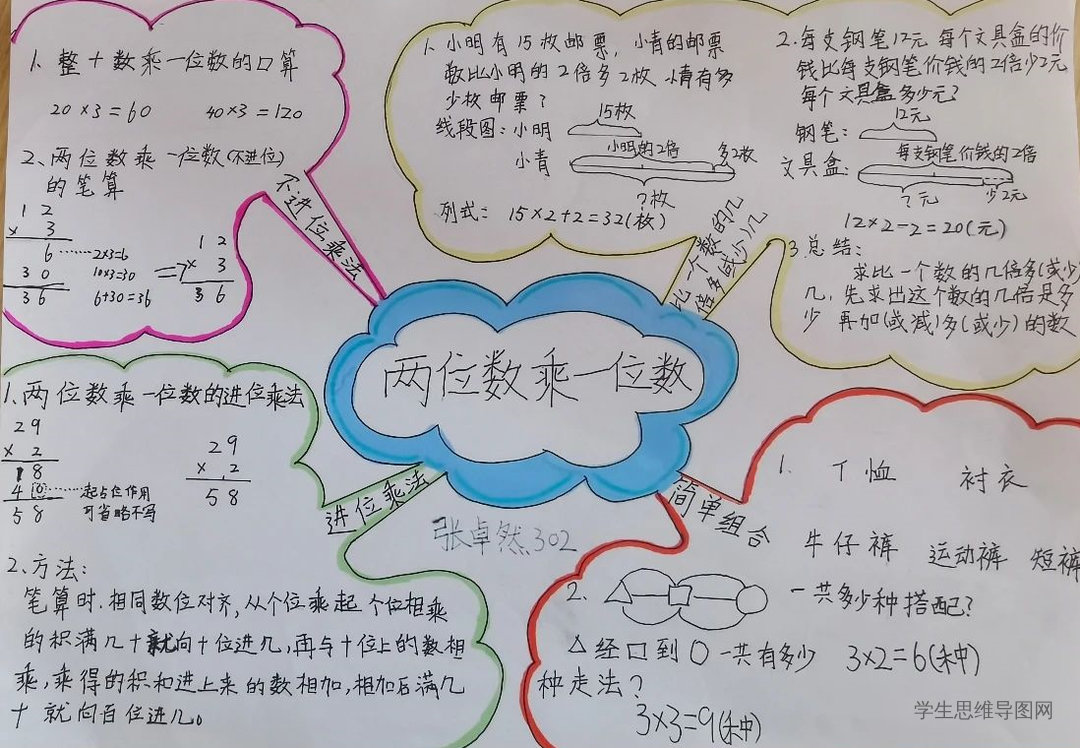 两位数乘一位数
张卓然302
不进位乘法
1、整十数乘一位数的口算
20×3=60 40×3=120
2、两位数乘一位数(不进位)
的笔算
1 2
× 3
6 ……2×3=6
3 0 10×3=30
3 6 6+30=36
=7
1 2
× 3
3 6
比一个数的几
倍多(或少)几
1、小明有15枚邮票，小青的邮票
数比小明的2倍多2枚 小青有多
少枚邮票？
线段图：小明 15枚
小青 小明的2倍 多2枚
？枚
列式： 15×2+2=32(枚)
2.每支钢笔12元 每个文具盒的价
钱比每支钢笔价钱的2倍少2元
每个文具盒多少元？
钢笔： 12元
文具盒： 每支钢笔价钱的2倍
？元 少2元
12×2-2=20(元)
3.总结：
求比一个数的几倍多(或少)
几，先求出这个数的几倍是多
少 再加(或减)多(或少)的数
进位乘法
1、两位数乘一位数的进位乘法
29
× 2
18
40 ……起占位作用
58 可省略不写
29
× 2
58
2、方法：
笔算时.相同数位对齐,从个位乘起 个位相乘
的积满几十就向十位进几,再与十位上的数相
乘,乘得的积和进上来的数相加,相加后满几
十 就向百位进几。
简单组合
1. T恤 衬衣
牛仔裤 运动裤 短裤
一共多少种搭配?
3×2=6(种)
2.
△经□到○一共有多少
种走法？
3×3=9(种)
学生思维导图网